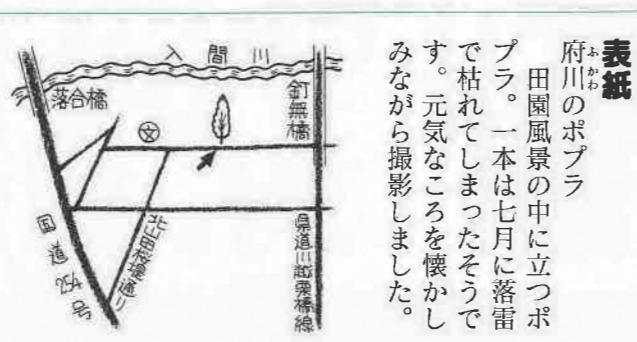 表紙
府川のポプラ
ふかわ
田園風景の中に立つポ
プラ。一本は七月に落雷
で枯れてしまったそうで
す。元気なころを懐かし
みながら撮影しました。
入間川
落合橋
釘無橋
文
国道254号
北山田桜堤通り
県道川越栗橋線